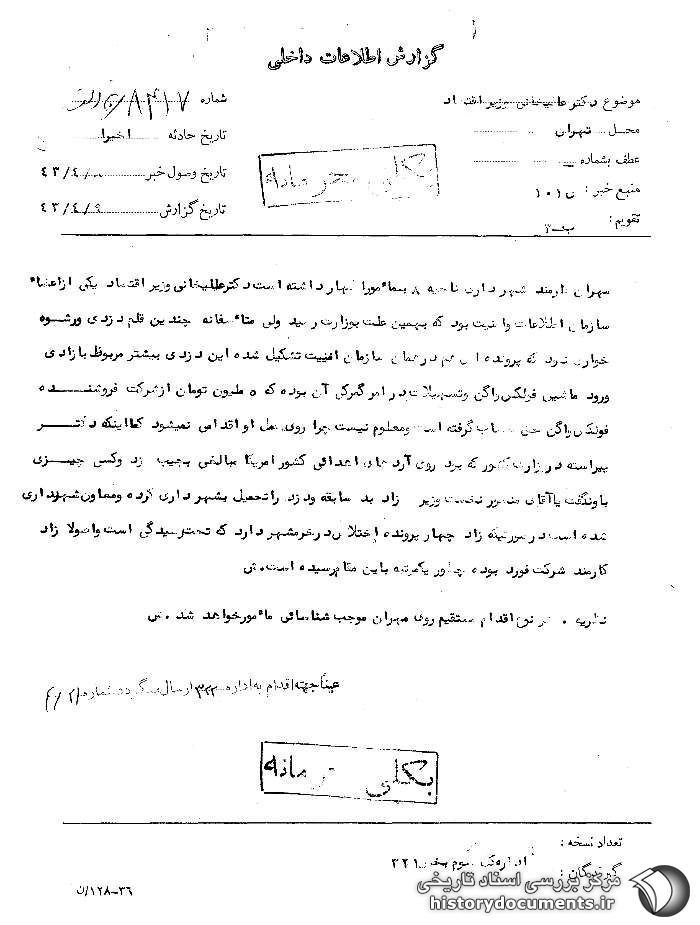 گزارش اطلاعات داخلی
موضوع دکتر عالیخانی وزیر اقتصاد
شماره
محل تهران
تاریخ حادثه اخیرا
عطف بشماره
تاریخ وصول خبر ۴۳/۴/۸
منبع خبر : ۱۰۱۰
تاریخ گزارش ۴۳/۴/۹
تقویم : ب-۳
بکلی محرمانه
مهران کارمند شهرداری ناحیه ۸ بمأمور اظهار داشته است دکتر عالیخانی وزیر اقتصاد یکی از اعضاء
سازمان اطلاعات و امنیت بود که بهمین علت بوزارت رسید ولی متأسفانه چندین قلم دزدی و رشوه
خواری دارد که پرونده آن هم در همان سازمان امنیت تشکیل شده این دزدی بیشتر مربوط بآزادی
ورود ماشین فولکس واگن و تسهیلات در امر گمرکی آن بوده که ۵ ملیون تومان از شرکت فروشنده
فولکس واگن حق حساب گرفته است و معلوم نیست چرا روی عمل او اقدامی نمیشود کما اینکه دکتر
پیراسته در وزارت کشور که بود روی آرد های اهدائی کشور امریکا مبالغی بجیب زد و کسی چیزی
باو نگفت یا آقای منصور نخست وزیر زاد بد سابقه و دزد را تحمیل بشهرداری کرده و معاون شهرداری
شده است در صورتیکه زاد چهار پرونده اختلاس در خرمشهر دارد که تحت رسیدگی است و اصولا زاد
کارمند شرکت فورد بوده چطور یکمرتبه باین مقام رسیده است. ش
نظریه . هر نوع اقدام مستقیم روی مهران موجب شناسائی مأمور خواهد شد . ش
عیناً جهت اقدام به اداره ۳۲۲ ارسال میگردد شماره
بکلی محرمانه
تعداد نسخه :
گیرندگان : اداره کل سوم بخش ۳۲۱
۳۶-۱۲۸/ن
مرکز بررسی اسناد تاریخی
historydocuments.ir